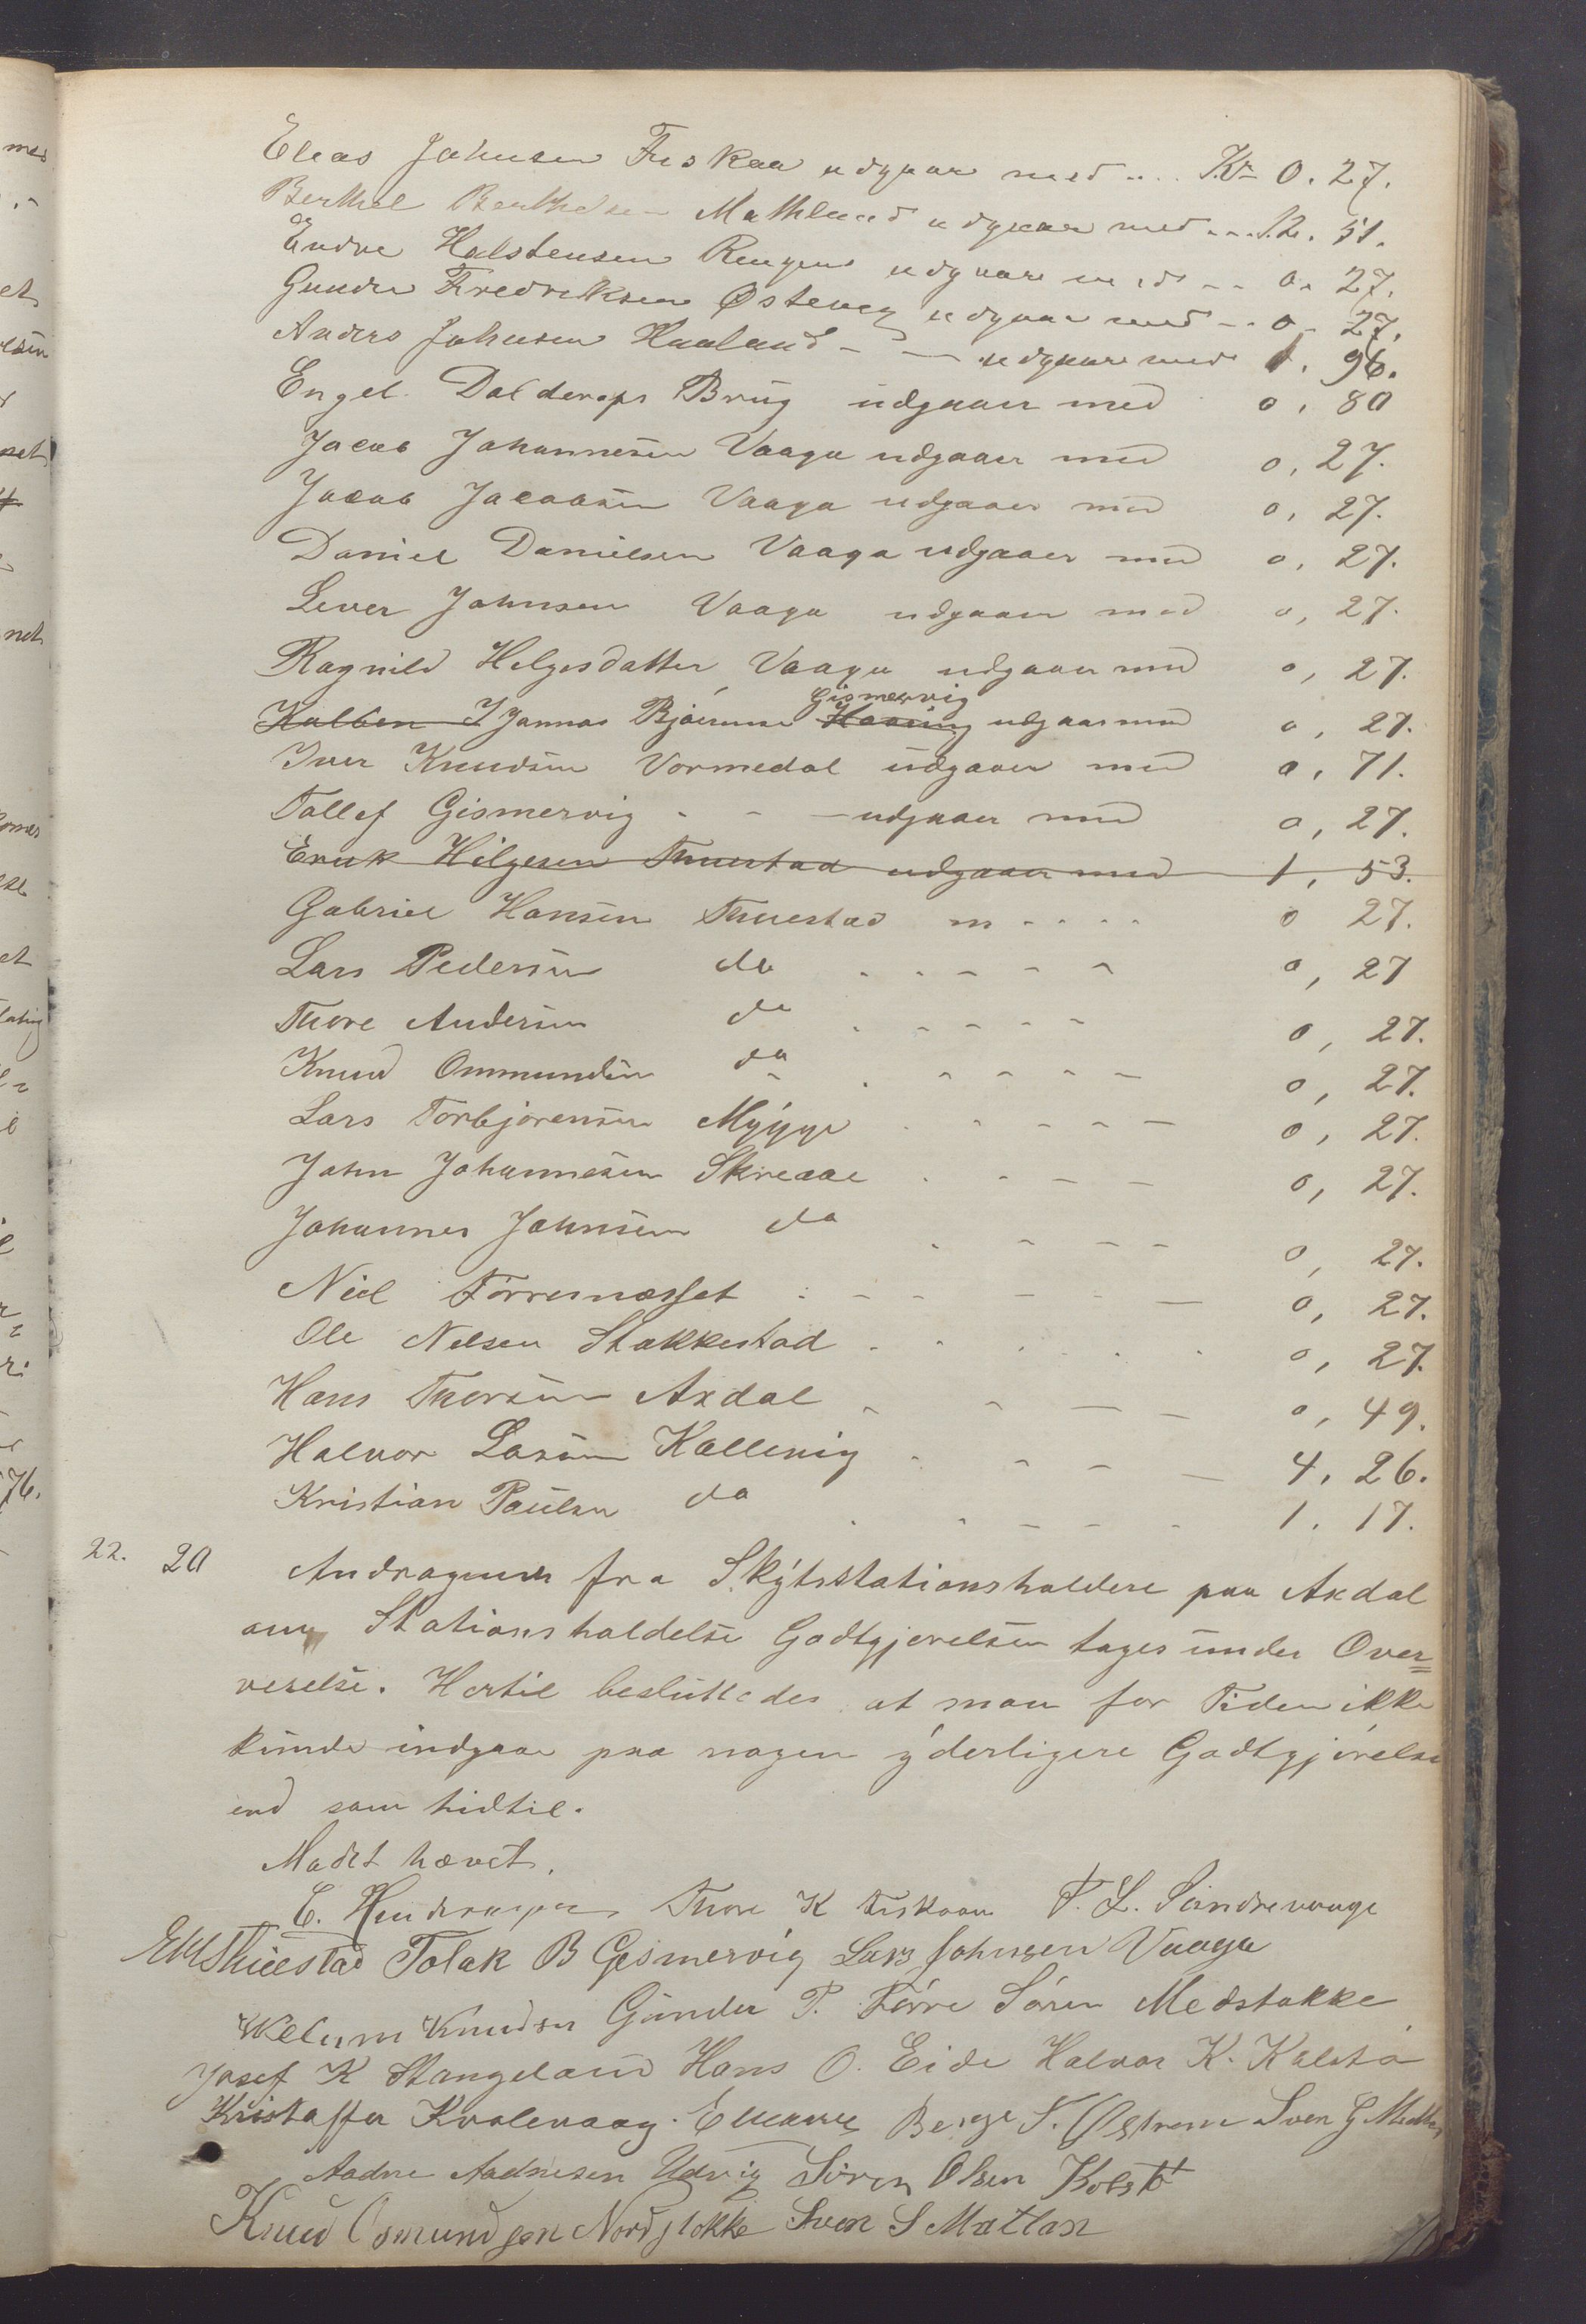 Elias Johnsen Fiskaa udgaar med ... Kr 0. 27.
Berthel Berthelsen Mathland udgaar med ... 12. 51.
Endre Halstensen udgaar med -- 0. 27.
Gunder Fredriksen Østevig udgaar med -- 0. 27.
Anders Johnsen Haaland - - udgaar med 1. 96.
Engel Dalderops Brug udgaar med 0, 80
Jacob Johannesen Vaaga udgaar med 0, 27.
Jacob Jacobsen Vaaga udgaar med 0, 27.
Daniel Danielsen Vaaga udgaar med 0, 27.
Lever Johnsen Vaaga udgaar med 0, 27.
Ragnild Helgesdatter Vaaga udgaar med 0, 27.
Jannas Bjørnsen Gismervig udgaar med 0, 27.
Iver Knudsen Vormedal udgaar med 0, 71.
Tollef Gismervig - - - udgaar med 0, 27.
Erik Helgesen Thuestad udgaar med 1, 53.
Gabriel Hansen Thuestad m - - - - 0 27.
Lars Pedersen do . - - - - 0, 27
Thore Andersen do . - - - - 0, 27.
Knud Ommundsen do . - - - - 0, 27.
Lars Torbjørensen Mygge . - - - - 0, 27.
John Johannesen Skreaae . - - - 0, 27.
Johannes Johnsen do . - - - 0, 27.
NielFørresnæsset . - - - - - 0, 27.
Ole Nelsen Stakkestad . . . . . 0, 27.
Hans Thorsen Axdal - - - - 0, 49.
Halvor Larsen Kallevig . - - - 4, 26.
Kristian Paulsen do . - - - - 1. 17.
22. 20 Andragende fra Skytsstationsholdere paa Axdal
om Stationsholdelse Godtgjørelsen tages under Over=
veielse. Hertil besluttedes at man for Tiden ikke
kunde indgaa paa nogen yderligere Godtgjørelse
end som hidtil.
Mødet hævet.
Thore K Fiskaae T. L. Søndrevaage
E H Thuestad Tolak B Gismervig Lars Johnsen Vaaga
Knudsen Gunder T. Førre Søren Medstokke
Josef K Stangeland Hans O. Eide Halvor K. Kolstø
Kristoffer Kvalevaag. Berge T. Østrem Sven G
Aadne Aadnesen Udvig Søren Olsen Kolstø
Knud Osmundsen Nordstokke Sven S Matlan